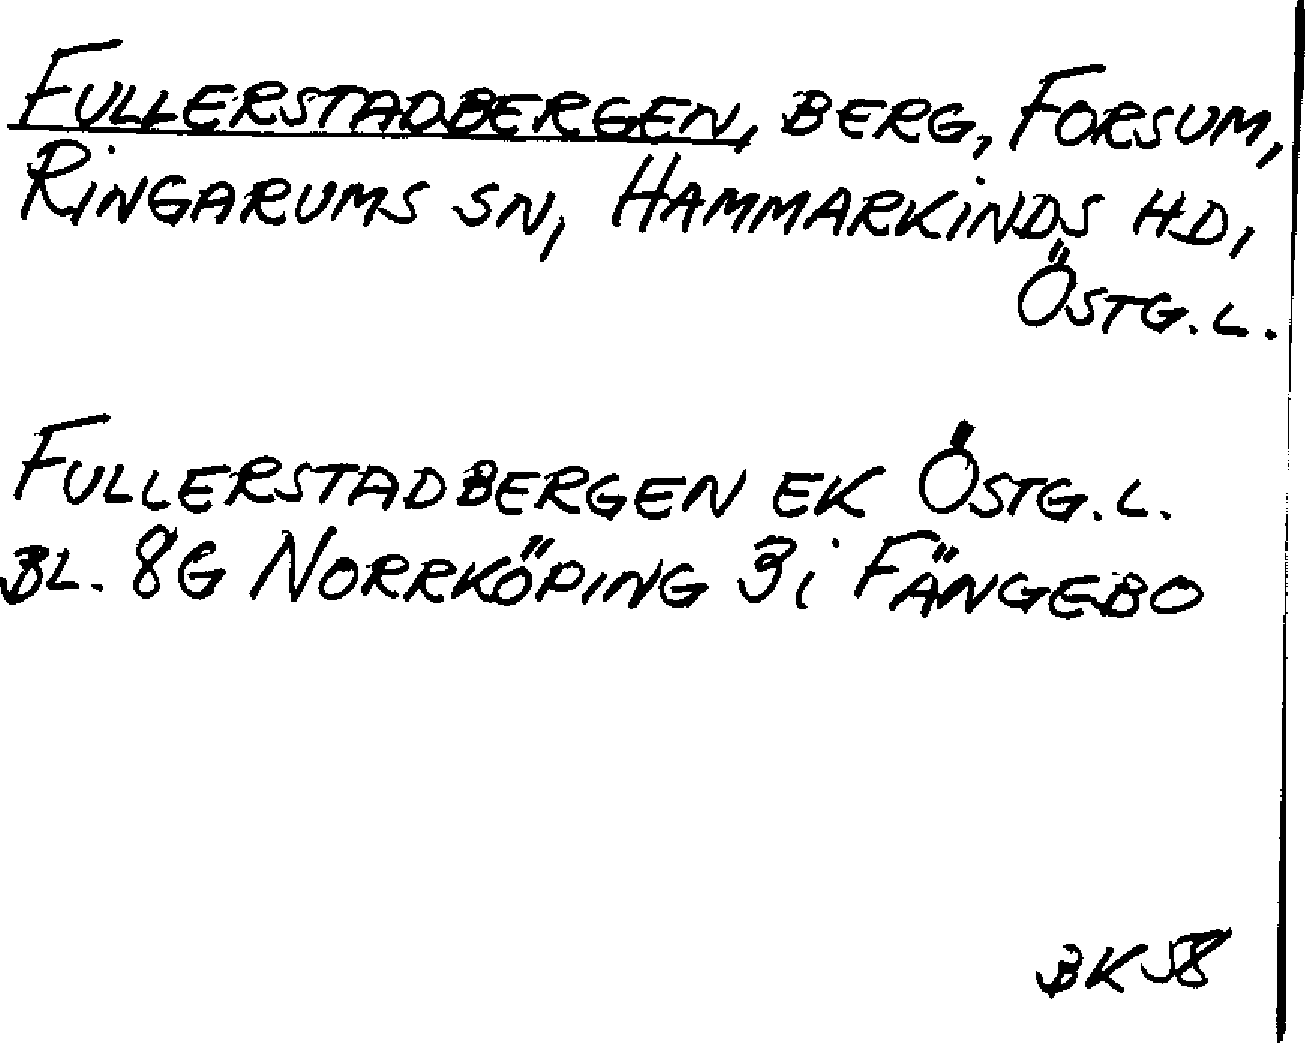 FULLERSTADBERGEN, BERG, FORSUM,
RINGARUMS SN, HAMMARKINDS HD,
ÖSTG.L.
FULLERSTADBERGEN EK ÖSTG.L.
BL. 8G NORRKÖPING 3i FÄNGEBO
BK58